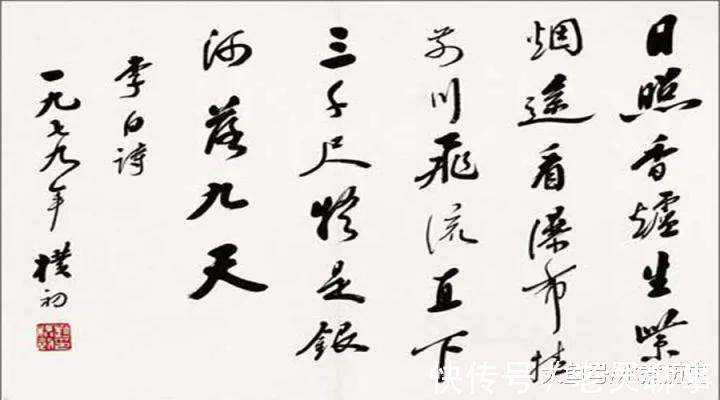 日照香爐生紫
烟遥看瀑布挂
前川飛流直下
三千尺疑是銀
河落九天
李白詩
一九七九年 樸初
快传号